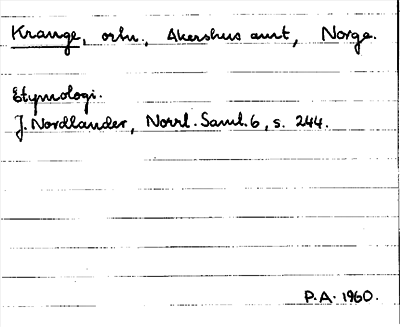 Krange, ortn., Akershus amt, Norge.
Etymologi.
J. Nordlander, Norrl. Saml. 6, s. 244.
P.A. 1960.